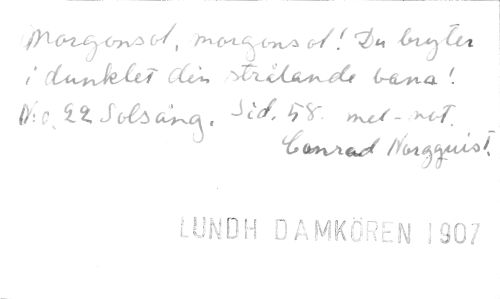 Morgonsol, morgonsol! Du bryter
i dunklet din strålande bana!
N:o. 22 Solsång. Sid. 58. mel-not.
Conrad Norqquist.
LUNDH DAMKÖREN 1907